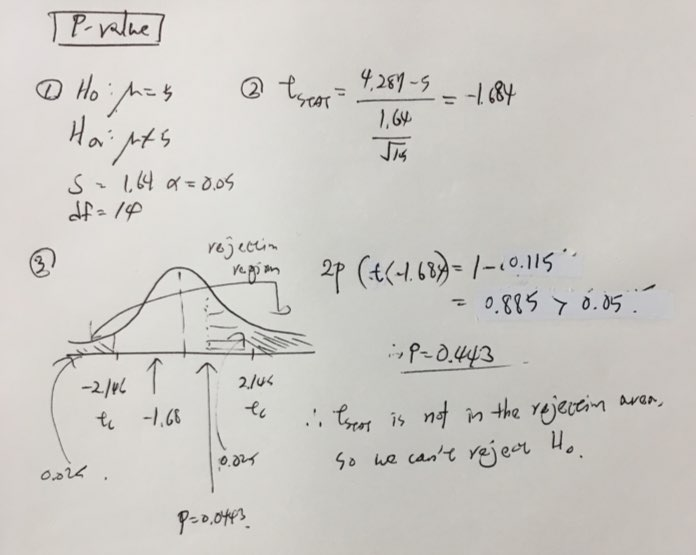 P-value
① H₀: μ = 5
Hₐ: μ ≠ 5
S = 1.64 α = 0.05
df = 14
② t_STAT = (4.287 - 5) / (1.64 / √15) = -1.684
③
rejection
region
-2.145
t_c
-1.68
2.145
t_c
0.025.
0.025
P=0.0443.
2P (t<-1.684) = 1 - 0.115
= 0.885 > 0.05.
∴ P=0.443
∴ t_STAT is not in the rejection area,
so we can't reject H₀.